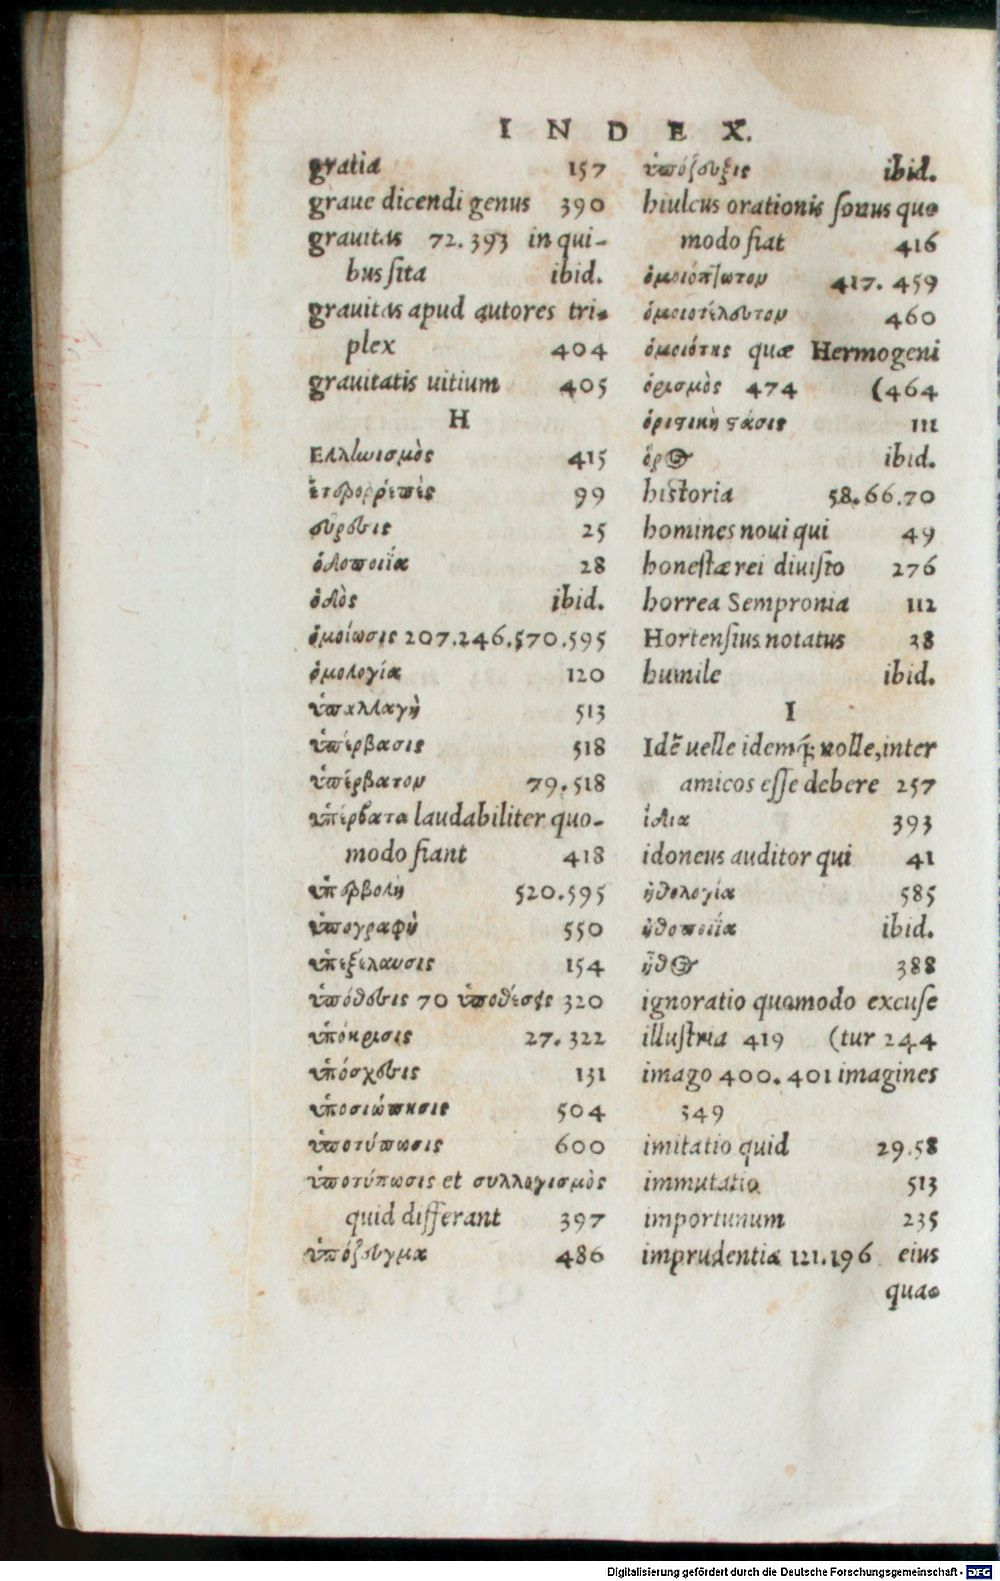 INDEX.
gratia 157
graue dicendi genus 390
grauitas 72.393 in qui-
bus sita ibid.
grauitas apud autores tri-
plex 404
grauitatis uitium 405
H
Ελλωισμὸς 415
ἑτερορρεπὲς 99
εὕρεσις 25
ὁδοποιΐα 28
ὁδὸς ibid.
ὁμοίωσις 207.246.570.595
ὁμολογία 120
ὑπαλλαγὴ 513
ὑπέρβασις 518
ὑπέρβατον 79.518
ὑπέρβατα laudabiliter quo-
modo fiant 418
ὑπερβολὴ 520.595
ὑπογραφὴ 550
ὑπεξέλευσις 154
ὑπόθεσις 70 ὑποθέσεις 320
ὑπόκρισις 27.322
ὑπόσχεσις 131
ὑποσιώπησις 504
ὑποτύπωσις 600
ὑποτύπωσις et συλλογισμὸς
quid differant 397
ὑπόζευγμα 486
ὑπόζευξις ibid.
hiulcus orationis sonus quo
modo fiat 416
ὁμοιόπτωτον 417.459
ὁμοιοτέλευτον 460
ὁμοιότης quæ Hermogeni
ὁρισμὸς 474 (464
ὁριστικὴ στάσις 111
ὅρος ibid.
historia 58.66.70
homines noui qui 49
honestæ rei diuisio 276
horrea Sempronia 112
Hortensius notatus 38
humile ibid.
I
Idẽ uelle idemq́; nolle, inter
amicos esse debere 257
ἰδια 393
idoneus auditor qui 41
ἠθολογία 585
ἠθοποιΐα ibid.
ἦθος 388
ignoratio quomodo excuse
illustria 419 (tur 244
imago 400.401 imagines
549
imitatio quid 29.58
immutatio 513
importunum 235
imprudentia 121.196 eius
quo-
Digitalisierung gefördert durch die Deutsche Forschungsgemeinschaft - DFG